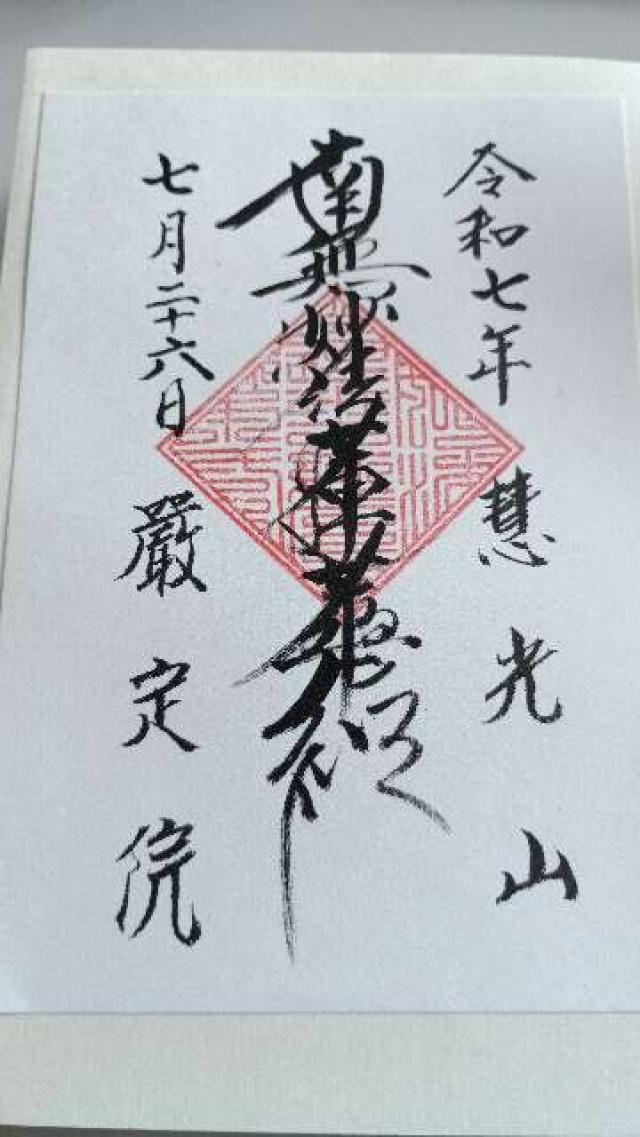 令和七年 慧光山
南無妙法蓮華經
七月二十六日 嚴定院